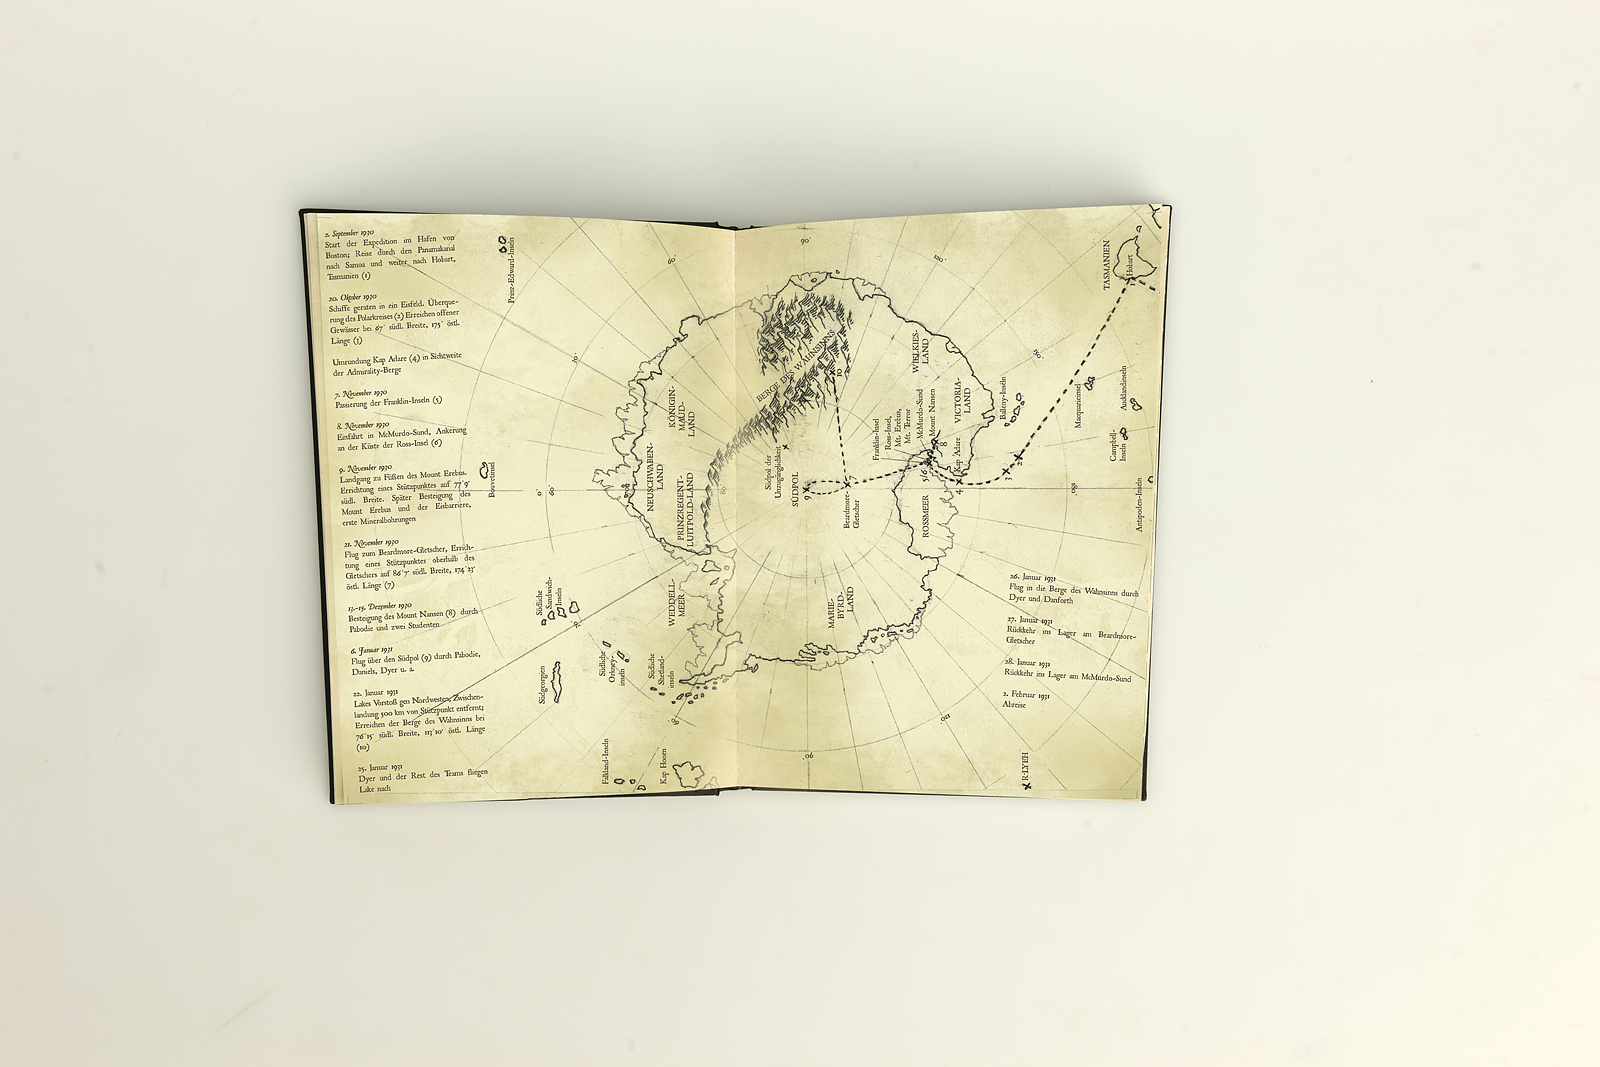 2. September 1930
Start der Expedition im Hafen von
Boston; Reise durch den Panamakanal
nach Samoa und weiter nach Hobart,
Tasmanien (1)
20. Oktober 1930
Schiffe geraten in ein Eisfeld. Überque-
rung des Polarkreises (2) Erreichen offener
Gewässer bei 67° südl. Breite, 175° östl.
Länge (3)
Umrundung Kap Adare (4) in Sichtweite
der Admirality-Berge
7. November 1930
Passierung der Franklin-Insel (5)
8. November 1930
Einfahrt in McMurdo-Sund, Ankerung
an der Küste der Ross-Insel (6)
9. November 1930
Landgang zu Füßen des Mount Erebus.
Errichtung eines Stützpunktes auf 77°9'
südl. Breite. Später Besteigung des
Mount Erebus und der Eisbarriere,
erste Mineralbohrungen
21. November 1930
Flug zum Beardmore-Gletscher, Errich-
tung eines Stützpunktes oberhalb des
Gletschers auf 86°7' südl. Breite, 174°23'
östl. Länge (7)
13.-15. Dezember 1930
Besteigung des Mount Nansen (8) durch
Pabodie und zwei Studenten
6. Januar 1931
Flug über den Südpol (9) durch Pabodie,
Daniels, Dyer u. a.
22. Januar 1931
Lakes Vorstoß gen Nordwesten, Zwischen-
landung 500 km von Stützpunkt entfernt;
Erreichen der Berge des Wahnsinns bei
76°15' südl. Breite, 113°10' östl. Länge
(10)
25. Januar 1931
Dyer und der Rest des Teams fliegen
Lake nach
Prinz-Edward-Inseln
Bouvetinsel
Südliche
Sandwich-
Inseln
Südgeorgien
Südliche
Orkney-
inseln
Südliche
Shetland-
inseln
Falkland-Inseln
Kap Hoorn
0°
60°
60°
KÖNIGIN-
MAUD-
LAND
NEUSCHWABEN-
LAND
PRINZREGENT-
LUITPOLD-LAND
WEDDELL-
MEER
80°
90°
120°
150°
180°
BERGE DES WAHNSINNS
10
Südpol der
Unzugänglichkeit
SÜDPOL
9
7
Beardmore-
Gletscher
Franklin-Insel
Ross-Insel,
Mt. Erebus,
Mt. Terror
McMurdo-Sund
Mount Nansen
8
5
6
Kap Adare
4
3
2
WILKIES-
LAND
VICTORIA-
LAND
ROSSMEER
MARIE-
BYRD-
LAND
Balleny-Inseln
Macquarieinsel
Aucklandinseln
Campbell-
Inseln
Antipoden-Inseln
TASMANIEN
Hobart
1
90°
R'LYEH
26. Januar 1931
Flug in die Berge des Wahnsinns durch
Dyer und Danforth
27. Januar 1931
Rückkehr ins Lager am Beardmore-
Gletscher
28. Januar 1931
Rückkehr ins Lager am McMurdo-Sund
2. Februar 1931
Abreise